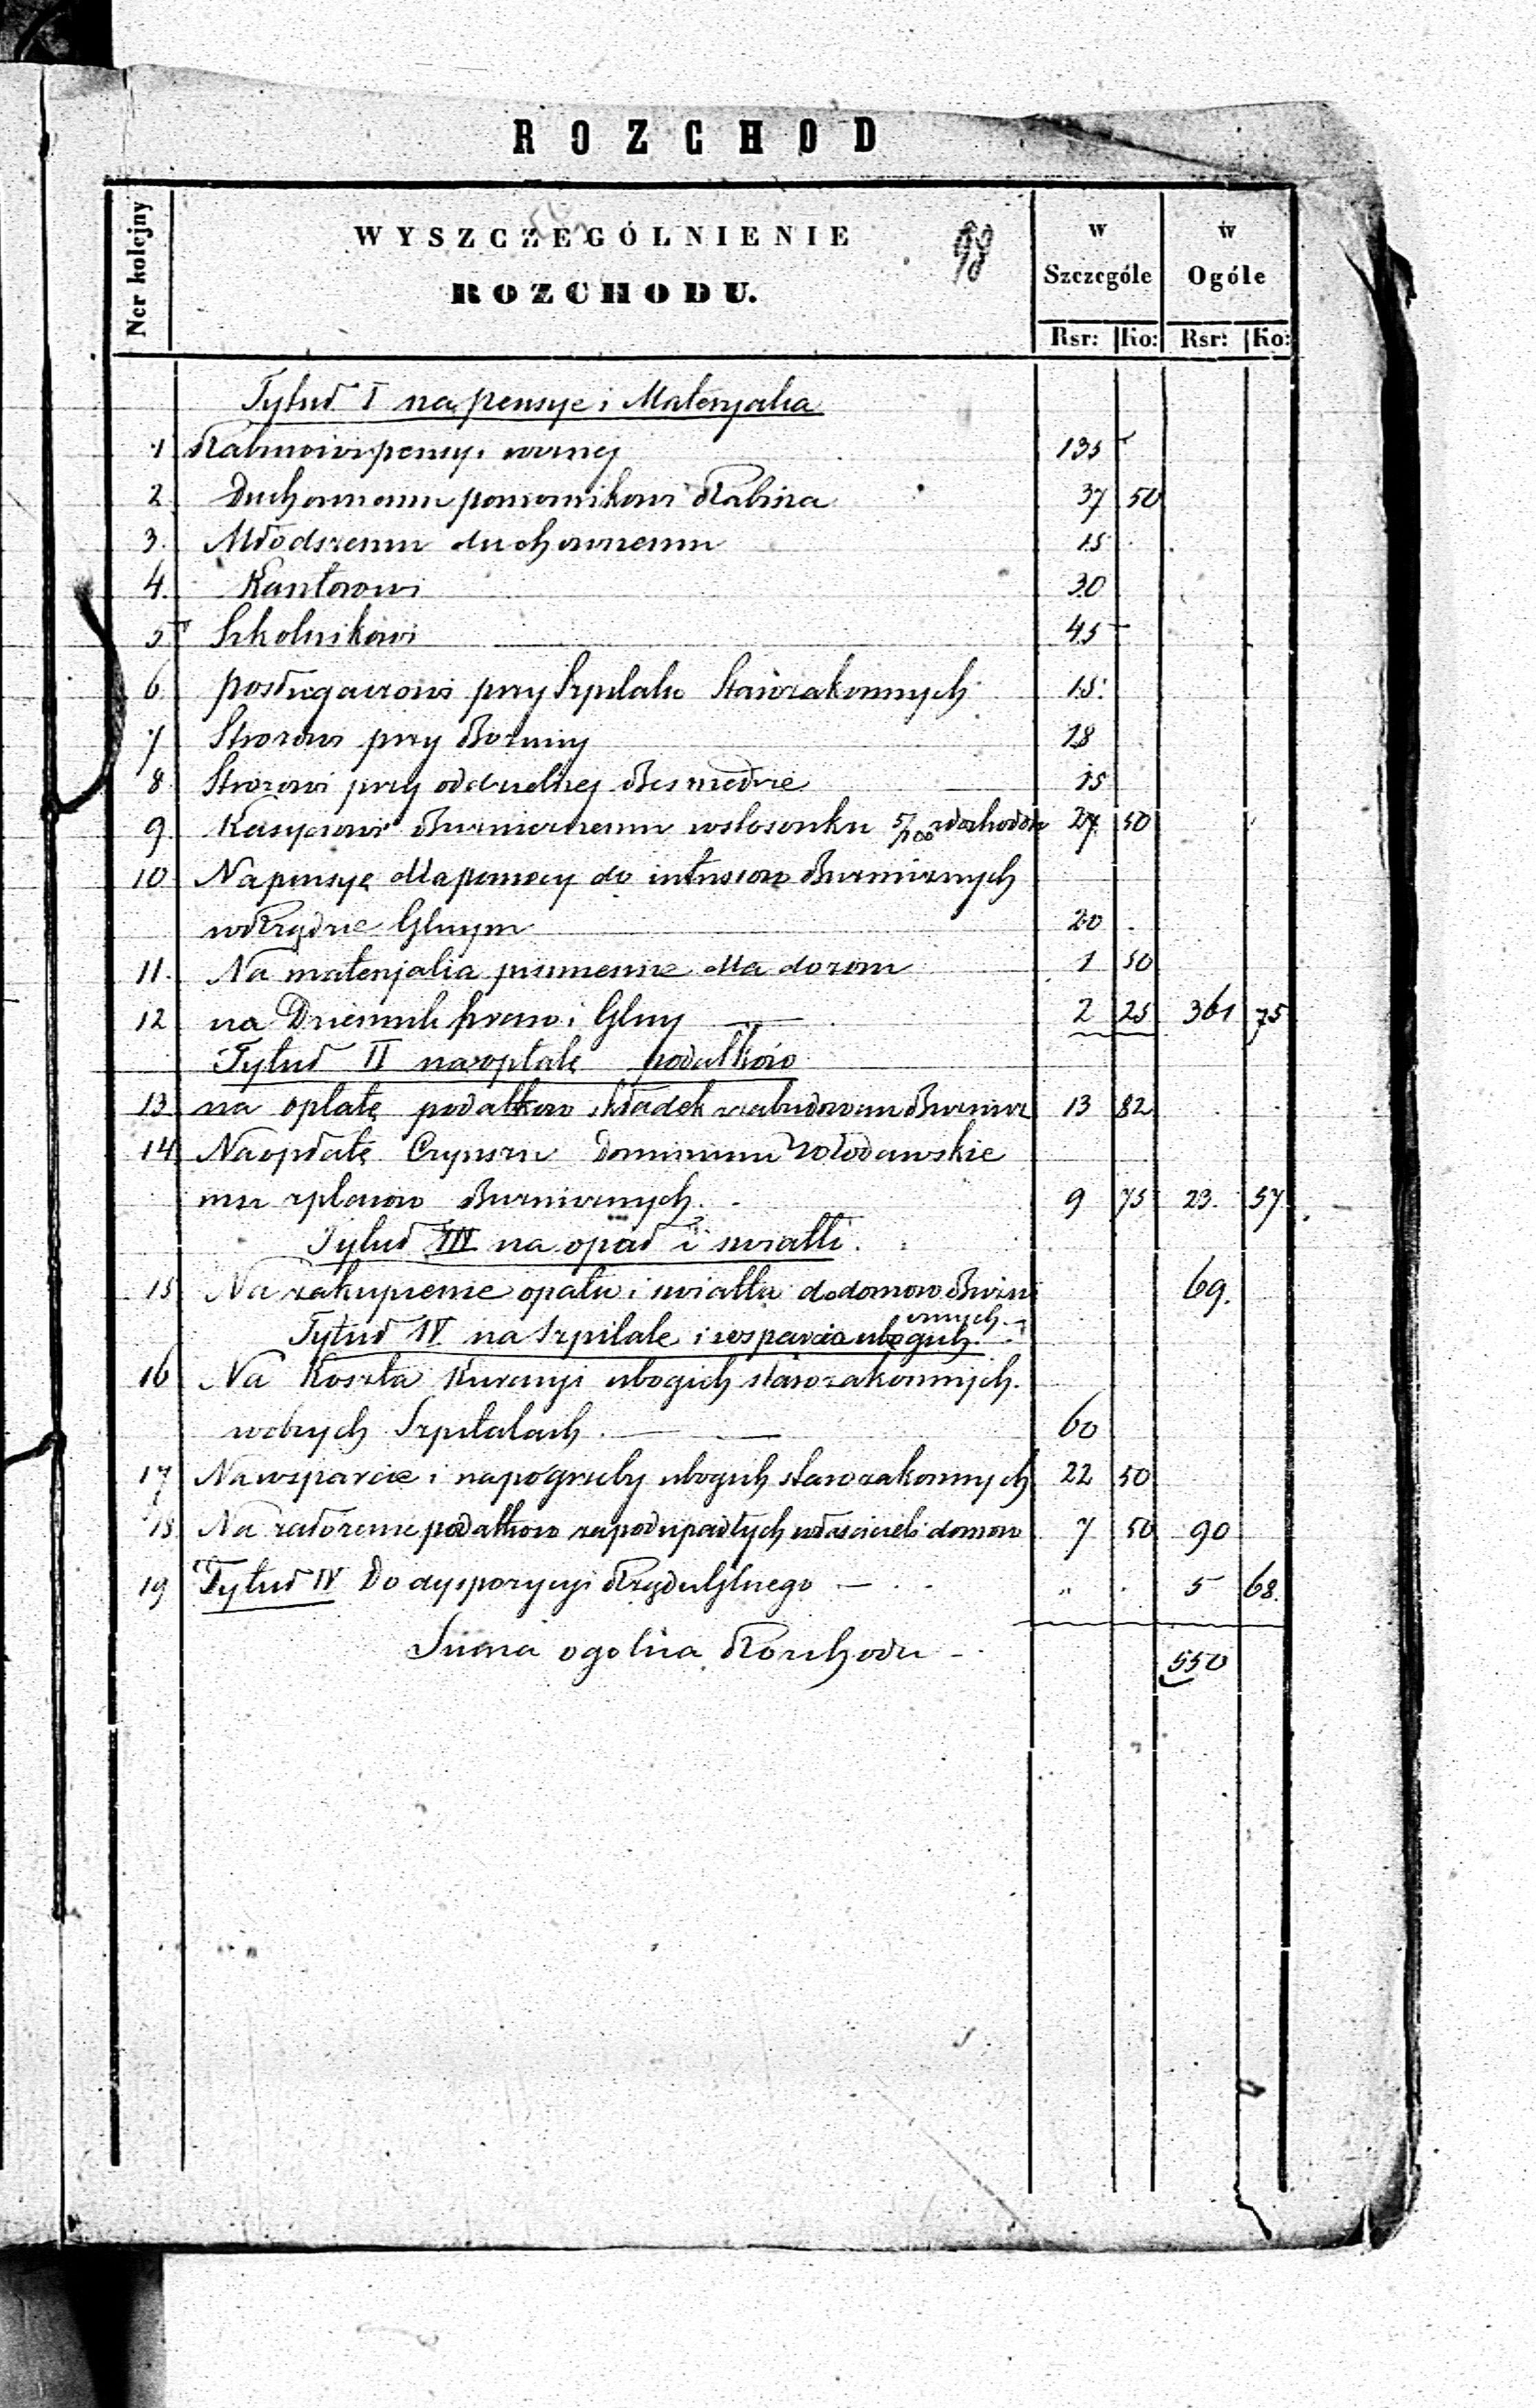 ROZCHOD
Ner kolejny
WYSZCZEGÓLNIENIE
ROZCHODU.
98
w Szczególe
w Ogóle
Rsr: Ko: Rsr: Ko:
Tytuł I na pensye i Materyalia
1 Rabinowi pensyi rocznej 135
2 Duchownemu pomocnikowi Rabina 37 50
3. Młodszemu duchownemu 15
4. Kantorowi 30
5 Szkolnikowi 45
6 posługaczowi przy Szpitalu Starozakonnych 15.
7 Strozowi przy Boznicy 18
8 Strozowi przy oddzielnej Besmedrze 15
9. Kasyerowi Boznicznemu w stosunku 5/100 z dochodów 27 50
10 Na pensyę dla pomocy do interesow Boznicznych
w Urzędzie Głnym 20
11. Na materjalia pismienne dla dozoru 1 50
12 na Dziennik praw i Glny 2 25 361 75
Tytuł II na opłatę podatków
13 na opłatę podatkow składek zabudowan Boznicz 13 82
14 Na opłatę Czynszu Dominium Włodawskie
mu z placow Boznicznych. 9 75 23. 57
Tytuł III na opał i swiatło.
15 Na zakupienie opału i swiatła do domow Bożni
cznych
69.
Tytuł IV na Szpitale i wsparcia ubogich
16 Na Koszta Kuracyi ubogich starozakonnych.
w obcych Szpitalach 60
17 Na wsparcie i na pogrzeby ubogich starozakonnych 22 50
18 Na założenie podatkow za podupadłych właścicieli domow 7 50 90
19 Tytuł IV Do dyspozycyi Rządu Głnego " 5 68.
Suma ogolna Rozchodu 550